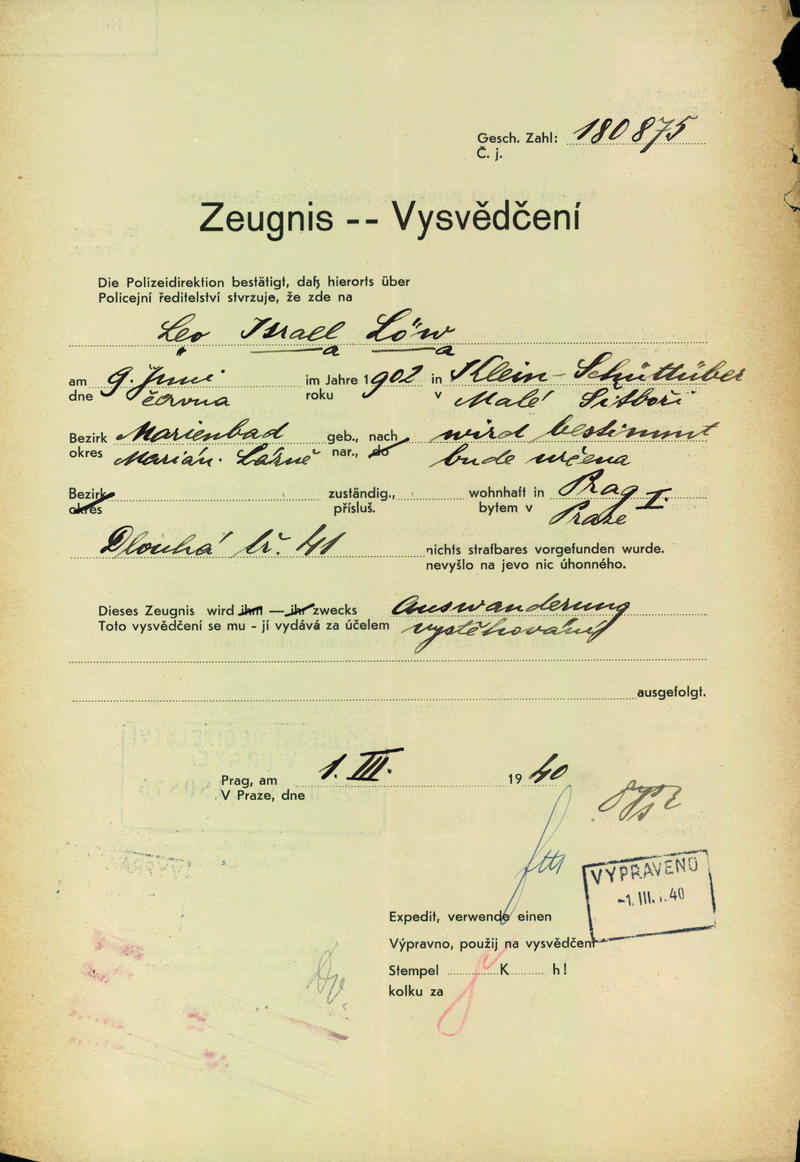 Gesch. Zahl: 180875
Č. j.
Zeugnis -- Vysvědčení
Die Polizeidirektion bestätigt, daß hierorts über
Policejní ředitelství stvrzuje, že zde na
Leo Israel Löw
am 9. Juni im Jahre 1902 in Klein-Schüttüber
dne června roku v Malé Šitboři
Bezirk Marienbad geb., nach wird bestimmt
okres Marián. Lázně nar., do bude určena
Bezirk zuständig., wohnhaft in Prag I.
okres přísluš. bytem v Praze
Dlouhá tř. 41 nichts strafbares vorgefunden wurde.
nevyšlo na jevo nic úhonného.
Dieses Zeugnis wird ihm — ihr zwecks Auswanderung
Toto vysvědčení se mu - jí vydává za účelem vystěhování
ausgefolgt.
Prag, am 1. III. 1940
V Praze, dne
VYPRAVENO
-1. III. 40
Expedit, verwende einen
Výpravno, použij na vysvědčení
Stempel K h!
kolku za